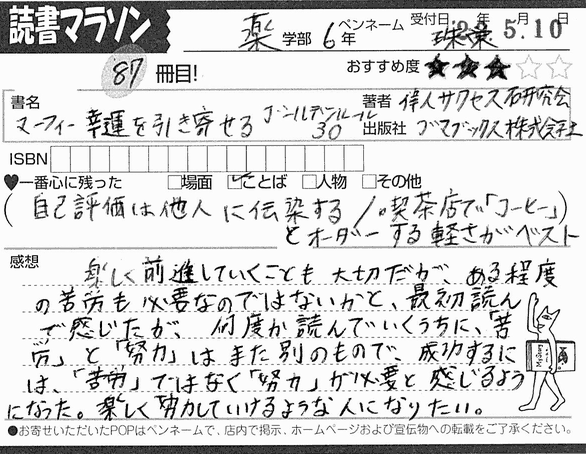 読書マラソン
薬 学部 6年 ペンネーム 珠 受付日 年 5月10日
87 冊目! おすすめ度 ★★★☆☆
書名 マーフィー 幸運を引き寄せる ゴールデンルール30
著者 偉人サクセス研究会
出版社 ゴマブックス株式会社
ISBN
♥一番心に残った □場面 ☑ことば □人物 □その他
(自己評価は他人に伝染する/・喫茶店で「コーヒー」)
とオーダーする軽さがベスト
感想
楽しく前進していくことも大切だが、ある程度
の苦労も必要なのではないかと、最初読ん
で感じたが、何度か読んでいくうちに、「苦
労」と「努力」はまた別のもので、成功するに
は、「苦労」ではなく「努力」が必要と感じるよう
になった。楽しく努力していけるような人になりたい。
●お寄せいただいたPOPはペンネームで、店内で掲示、ホームページおよび宣伝物への転載をご了承ください。